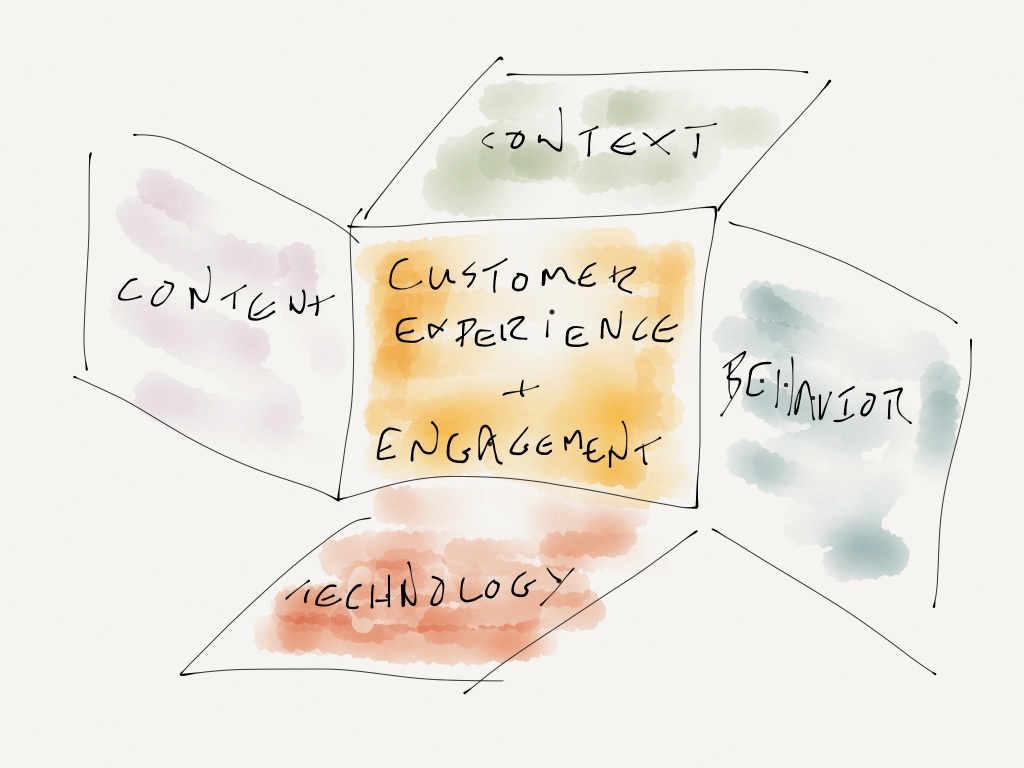 CONTEXT
CONTENT
CUSTOMER
EXPERIENCE
+
ENGAGEMENT
BEHAVIOR
TECHNOLOGY